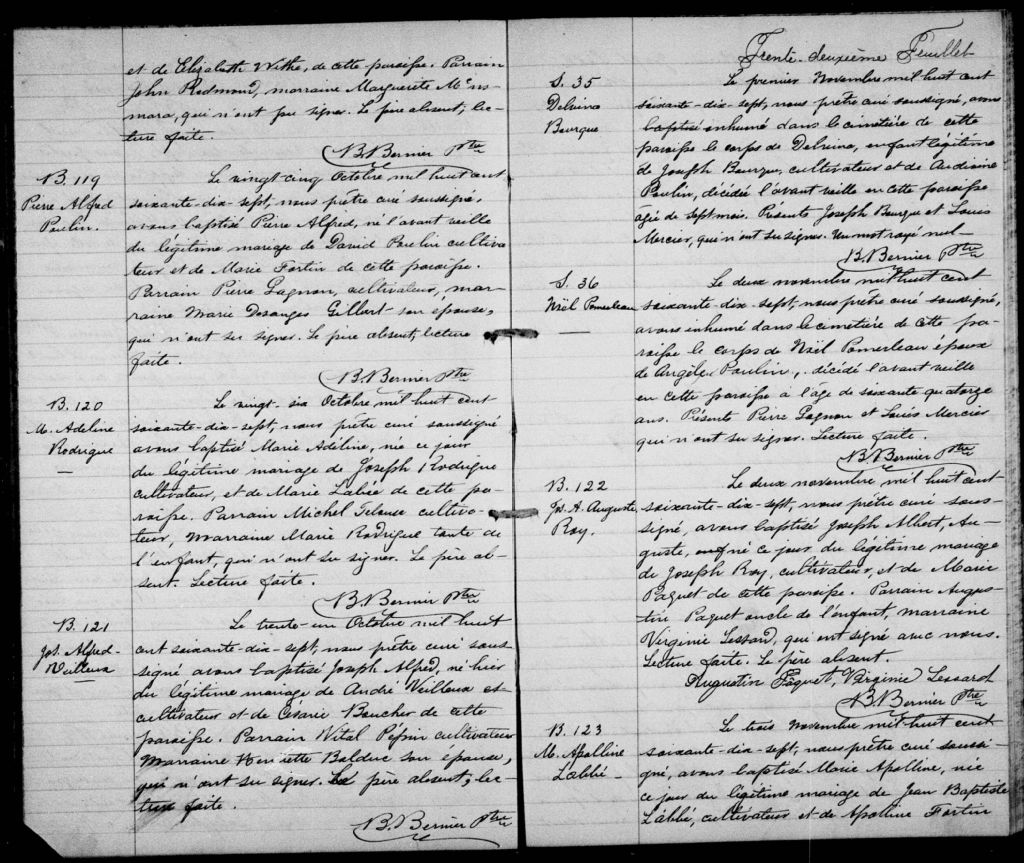 et de Elizabeth Withe, de cette paroisse. Parrain
John Redmond, marraine Marguerite McNa-
mara, qui n'ont pu signer. Le père absent; lec-
ture faite.
N.Bernier Ptre
B. 119
Pierre Alfred
Poulin.
Le vingt-cinq Octobre mil huit cent
soixante-dix-sept, nous prêtre curé soussigné,
avons baptisé Pierre Alfred, né l'avant veille
du légitime mariage de David Poulin cultiva-
teur et de Marie Fortin de cette paroisse.
Parrain Pierre Gagnon, cultivateur, mar-
raine Marie Desanges Gilbert son épouse,
qui n'ont su signer. Le père absent, lecture
faite.
N.Bernier Ptre
B. 120
M. Adeline
Rodrigue
Le vingt-six Octobre mil huit cent
soixante-dix-sept, nous prêtre curé soussigné
avons baptisé Marie Adéline, née ce jour
du légitime mariage de Joseph Rodrigue
cultivateur, et de Marie Labée de cette pa-
roisse. Parrain Michel cultiva-
teur, Marraine Marie Rodrigue tante de
l'enfant, qui n'ont su signer. Le père ab-
sent. Lecture faite.
N.Bernier Ptre
B. 121
Jos. Alfred-
Veilleux
Le trente-un Octobre mil huit
cent soixante-dix-sept, nous prêtre curé sous-
signé avons baptisé Joseph Alfred, né hier
du légitime mariage de André Veilleux et
cultivateur et de Césarie Boucher de cette
paroisse. Parrain Vital Pépin cultivateur
Marraine Henriette Bolduc son épouse,
qui n'ont su signer. Le père absent, lec-
ture faite.
N.Bernier Ptre
Trente-deuxième Feuillet
S. 35
Delvina
Bourque
Le premier Novembre mil huit cent
soixante-dix-sept, nous prêtre curé soussigné, avons
baptisé inhumé dans le cimetière de cette
paroisse le corps de Delvina, enfant légitime
de Joseph Bourque, cultivateur et de
Poulin, décédée l'avant veille en cette paroisse
âgée de sept mois. Présents Joseph Bourque et Louis
Mercier, qui n'ont su signer. Un mot rayé nul
N.Bernier Ptre
S. 36
Noël Pomerleau
Le deux novembre mil huit cent
soixante dix-sept, nous prêtre curé soussigné,
avons inhumé dans le cimetière de cette pa-
roisse le corps de Noël Pomerleau époux
de Angèle Poulin, décédé l'avant veille
en cette paroisse à l'âge de soixante quatorze
ans. Présents Pierre Gagnon et Louis Mercier
qui n'ont su signer. Lecture faite.
N.Bernier Ptre
B. 122
Jos. A. Auguste
Roy.
Le deux novembre mil huit cent
soixante-dix-sept, nous prêtre curé sous-
signé, avons baptisé Joseph Albert, Au-
guste, né ce jour du légitime mariage
de Joseph Roy, cultivateur, et de Marie
Paquet de cette paroisse. Parrain Augus-
tin Paquet oncle de l'enfant, marraine
Virginie Lessard, qui ont signé avec nous.
Lecture faite. Le père absent.
Augustin Paquet, Virginie Lessard
N.Bernier Ptre
B. 123
M. Apolline
Labbé
Le trois novembre mil huit cent
soixante-dix-sept, nous prêtre curé soussi-
gné, avons baptisé Marie Apolline, née
ce jour du légitime mariage de Jean Baptiste
Labbé, cultivateur et de Apolline Fortin